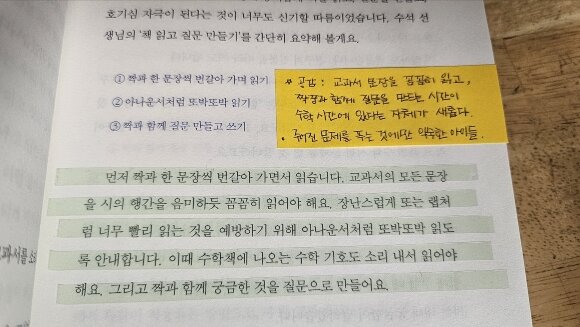 호기심 자극이 된다는 것이 너무도 신기할 따름이었습니다. 수석 선
생님의 '책 읽고 질문 만들기'를 간단히 요약해 볼게요.
① 짝과 한 문장씩 번갈아 가며 읽기
② 아나운서처럼 또박또박 읽기
③ 짝과 함께 질문 만들고 쓰기
* 공감 : 교과서 문장을 꼼꼼히 읽고,
짝꿍과 함께 질문을 만드는 시간이
수학시간에 있다는 자체가 새롭다.
• 주어진 문제를 푸는 것에만 익숙한 아이들.
먼저 짝과 한 문장씩 번갈아 가면서 읽습니다. 교과서의 모든 문장
을 시의 행간을 음미하듯 꼼꼼히 읽어야 해요. 장난스럽게 또는 랩처
럼 너무 빨리 읽는 것을 예방하기 위해 아나운서처럼 또박또박 읽도
록 안내합니다. 이때 수학책에 나오는 수학 기호도 소리 내서 읽어야
해요. 그리고 짝과 함께 궁금한 것을 질문으로 만들어요.